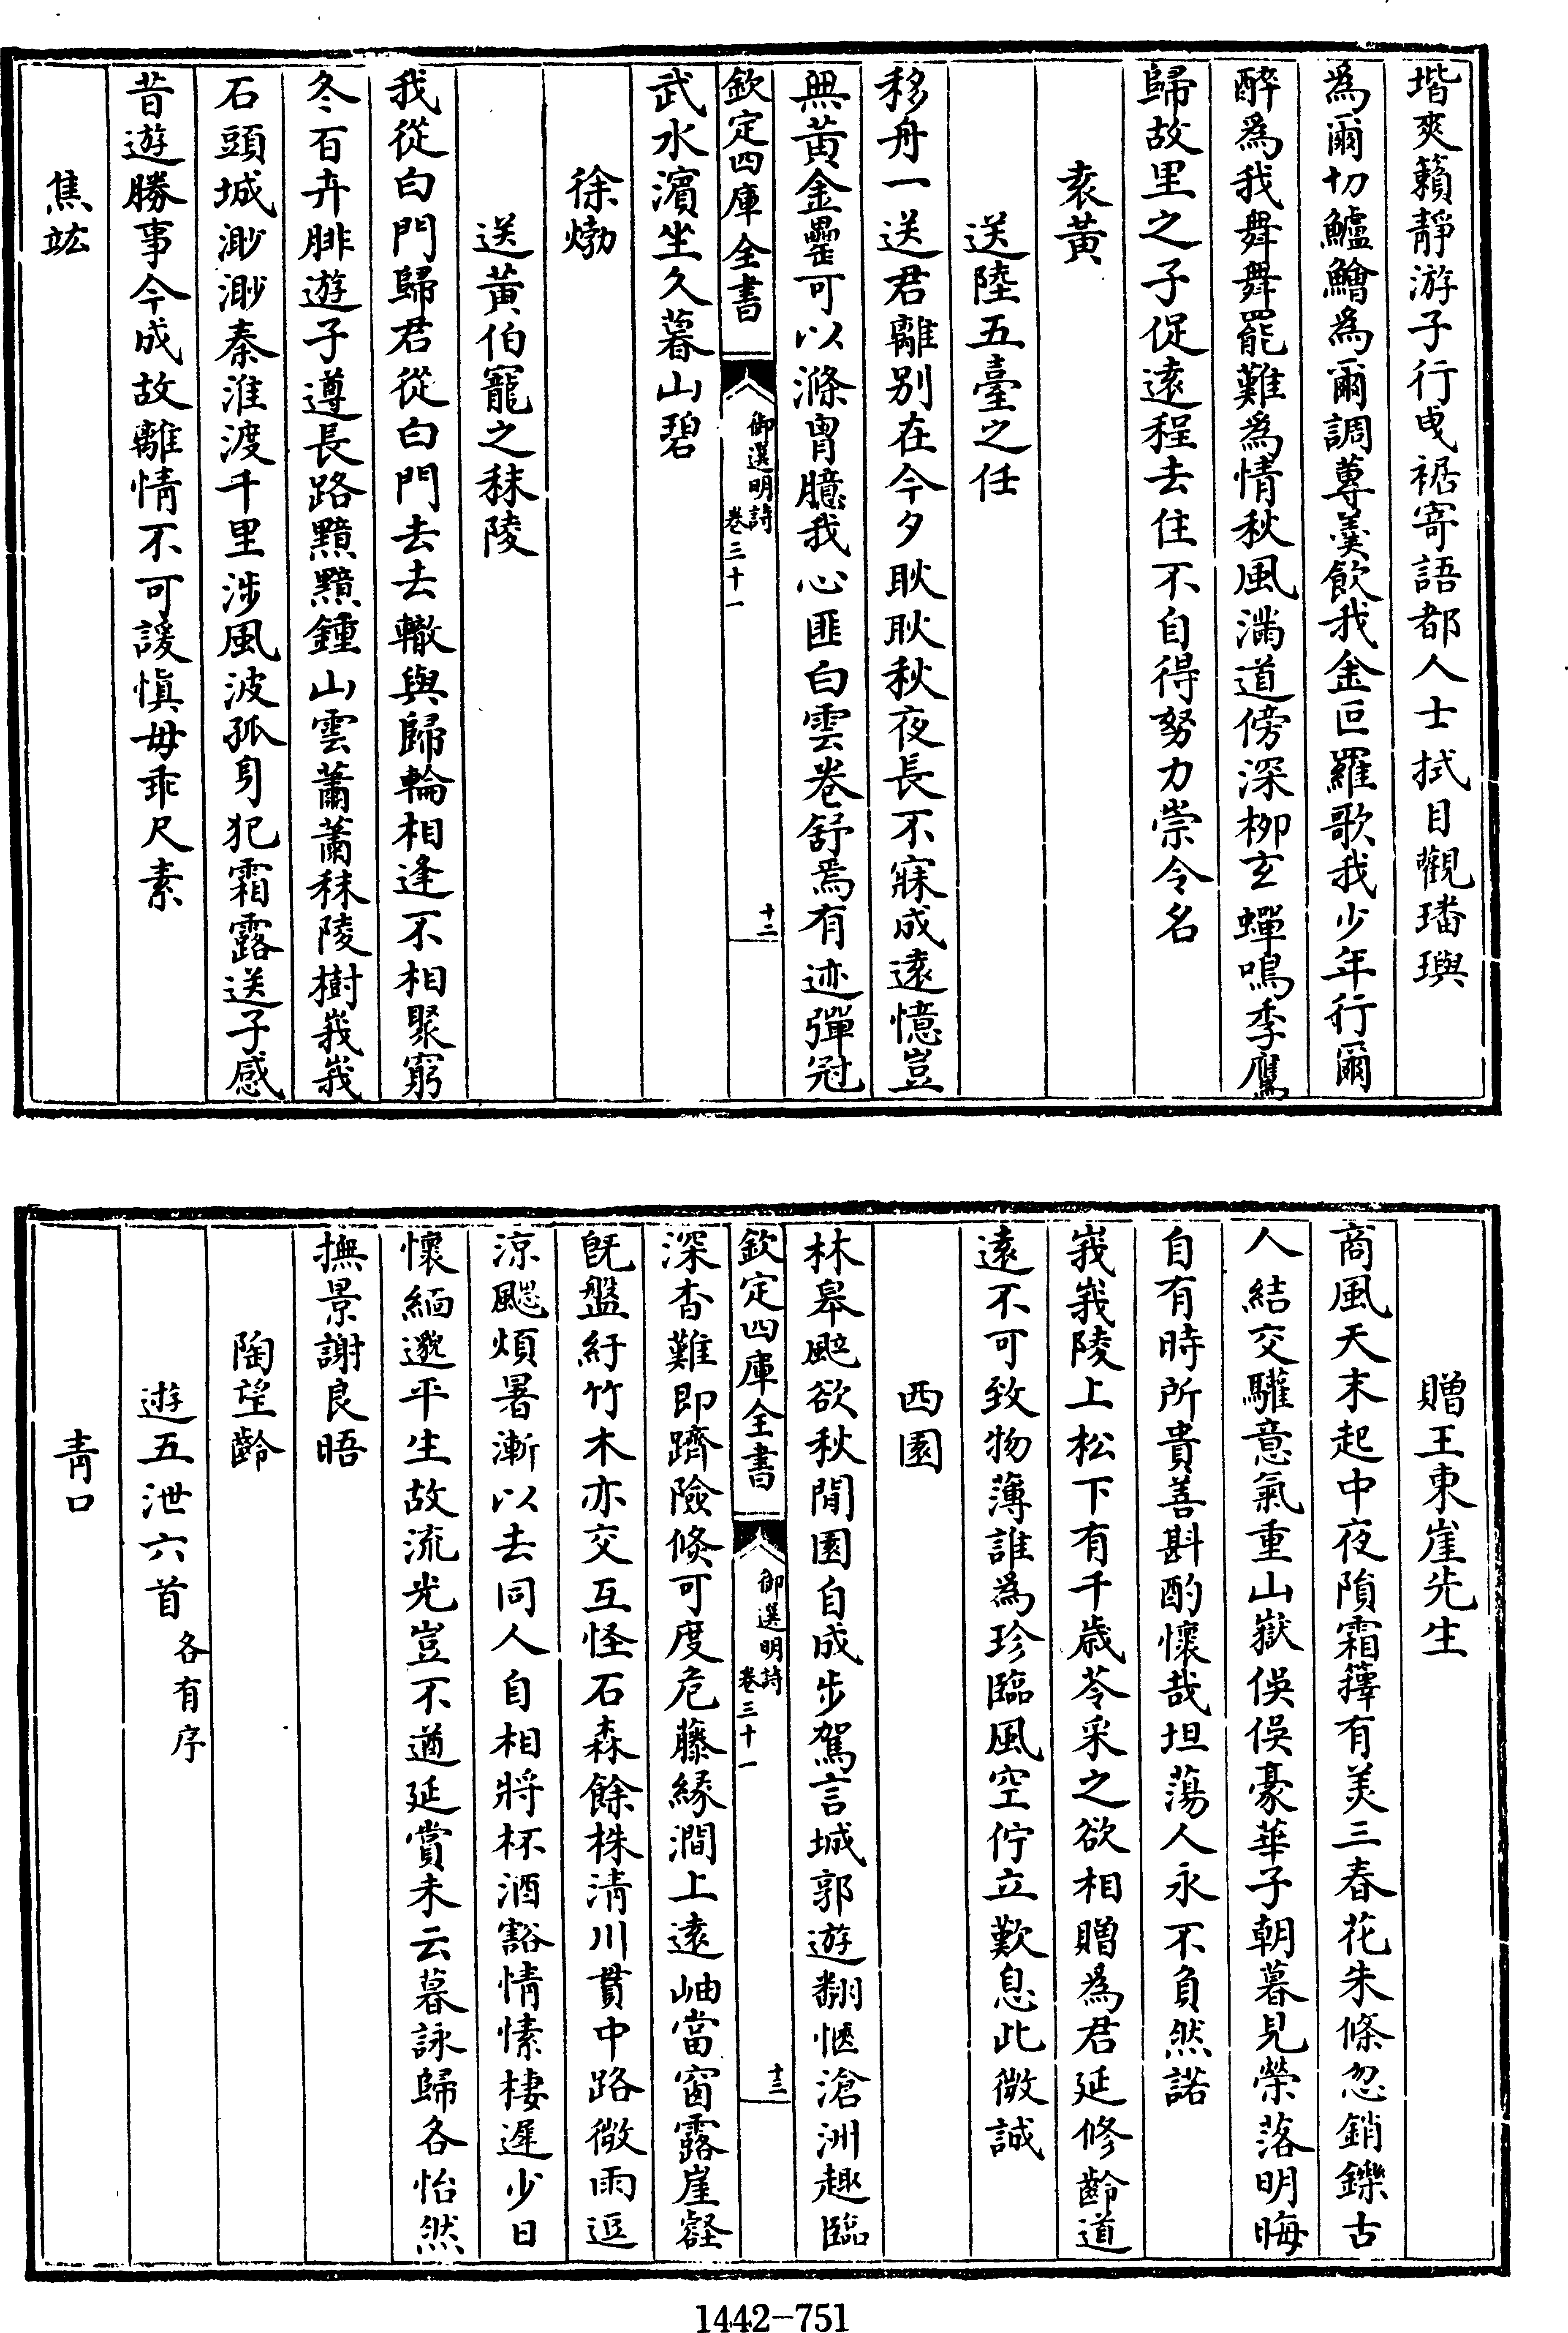 堦爽籟靜游子行曵裾寄語都人士拭目觀璠璵
為爾切鱸鱠為爾調蓴羮飲我金叵羅歌我少年行爾
醉為我舞舞罷難為情秋風滿道傍深栁玄蟬鳴季鷹
歸故里之子促遠程去住不自得努力崇令名
袁黃
送陸五臺之任
移舟一送君離别在今夕耿耿秋夜長不寐成遠憶豈
無黄金罍可以滌胷臆我心匪白雲卷舒焉有迹彈冠
欽定四庫全書
御選明詩
卷三十一
十二
武水濱坐久暮山碧
徐𤊹
送黄伯寵之秣陵
我從白門歸君從白門去去轍與歸輪相逢不相聚窮
冬百卉腓遊子遵長路黯黯鍾山雲蕭蕭秣陵樹峩峩
石頭城渺渺秦淮渡千里涉風波孤身犯霜露送子感
昔遊勝事今成故離情不可諼愼毋乖尺素
焦竑
贈王東崖先生
商風天末起中夜隕霜籜有美三春花朱條忽銷鑠古
人結交驩意氣重山嶽俁俁豪華子朝暮見榮落明晦
自有時所貴善斟酌懷哉坦蕩人永不負然諾
峩峩陵上松下有千歲苓采之欲相贈為君延修齡道
遠不可致物薄誰為珍臨風空佇立歎息此微誠
西園
林皋颭欲秋閒園自成步駕言城郭遊翻愜滄洲趣臨
欽定四庫全書
御選明詩
卷三十一
十三
深杳難即躋險倐可度危藤緣澗上遠岫當窗露崖壑
旣盤紆竹木亦交互怪石森餘株清川貫中路微雨逗
凉颸煩暑漸以去同人自相將杯酒豁情愫棲遲少日
懷緬邈平生故流光豈不遒延賞未云暮詠歸各怡然
撫景謝良晤
陶望齡
遊五泄六首 各有序
青口
1442-751